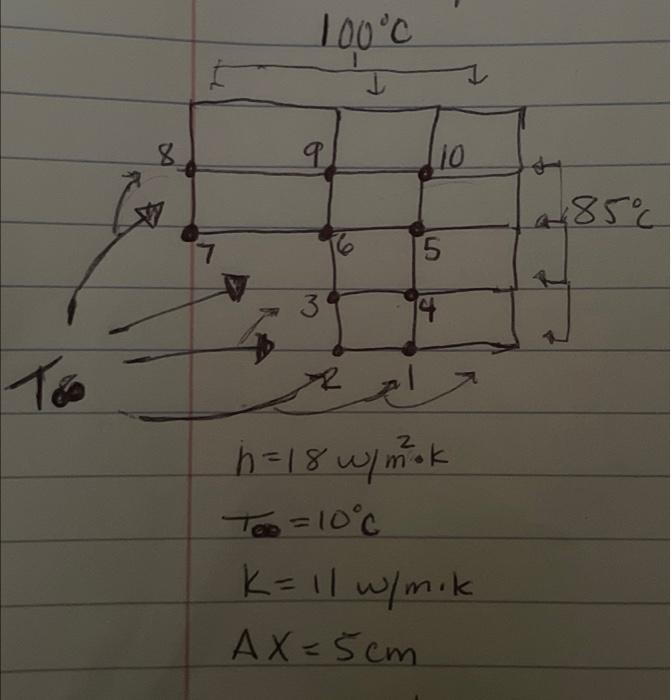 100°C
8 9 10
85°C
7 6 5
3 4
T∞
2 1
h=18 w/m²·k
T∞=10°C
K=11 w/m·k
ΔX=5cm